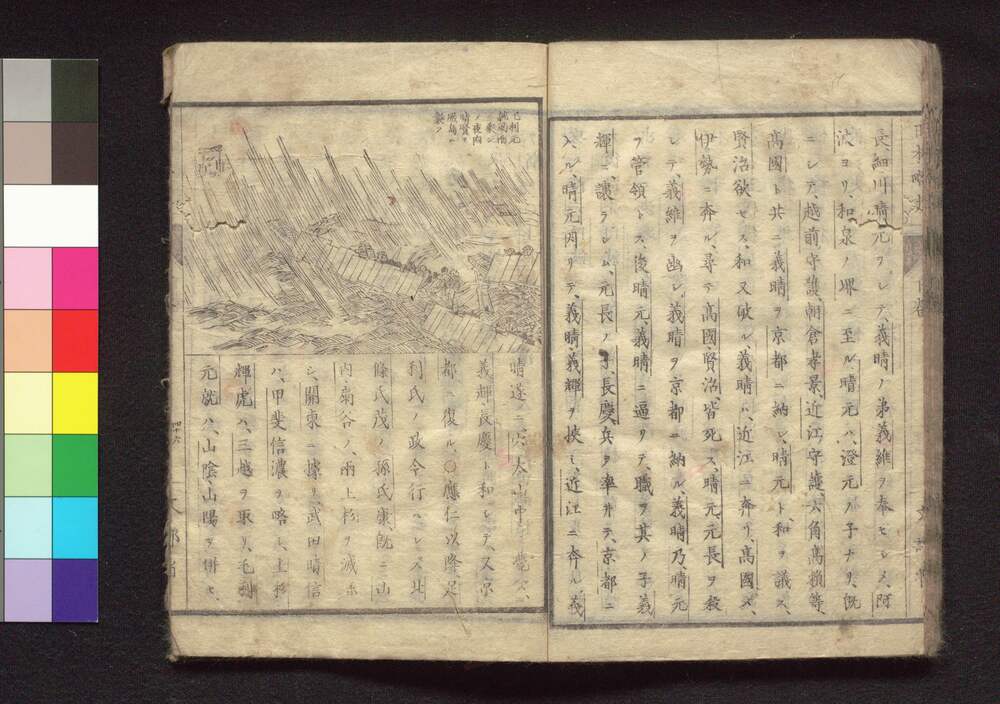 長細川晴元ヲシテ、義晴ノ弟義維ヲ奉セシメ、阿
波ヨリ、和泉ノ堺ニ至ル、晴元ハ、澄元ノ子ナリ、既
ニシテ、越前守護、朝倉孝景、近江守護、六角高頼等、
高國ト共ニ義晴ヲ京都ニ納レ、晴元ト和ヲ議ス、
賢治欲セス、和又破ル、義晴ハ、近江ニ奔リ、高國ハ、
伊勢ニ奔ル、尋テ高國、賢治、皆死ス、晴元、元長ヲ殺
シテ、義維ヲ幽シ、義晴ヲ京都ニ納ル、義晴乃、晴元
ヲ管領トス、後晴元、義晴ニ逼リテ、職ヲ其ノ子義
輝ニ、讓ラシム、元長ノ子、長慶兵ヲ率井テ、京都ニ
入ル、晴元因リテ、義晴、義輝ヲ挾ミ、近江ニ奔ル、義
毛利元
就雨
ノ夜
晴賢ヲ
嚴島ニ
襲フ
晴遂ニ、穴太山中ニ薨ス、
義輝、長慶ト和シテ、又京
都ニ復ル、○應仁以降、足
利氏ノ政令行ハレス、北
條氏茂ノ孫氏康、既ニ山
内扇谷ノ、兩上杉ヲ滅ホ
シ、關東ニ據リ、武田晴信
ハ、甲斐信濃ヲ略シ、上杉
輝虎ハ、三越ヲ取リ、毛利
元就ハ、山陰山陽ヲ併セ、
四十六